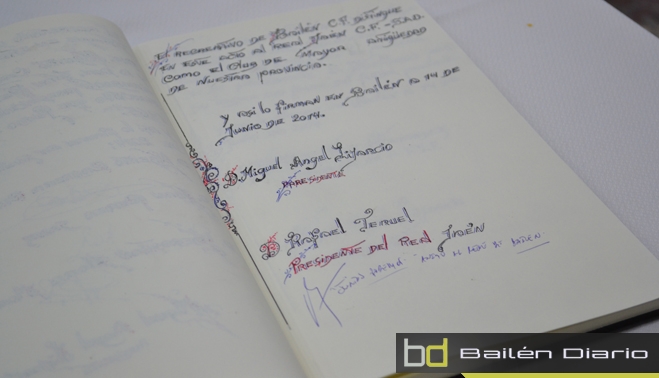 El recreativo de Bailén C.F. distingue
en este año al Real Jaén C.F. -S.A.D.
como el Club de mayor antigüedad
de nuestra provincia.
Y así lo firman en Bailén a 14 de
Junio de 2014.
D. Miguel Angel Lijarcio
Presidente
D. Rafael Teruel
Presidente del Real Jaén
bd Bailén Diario